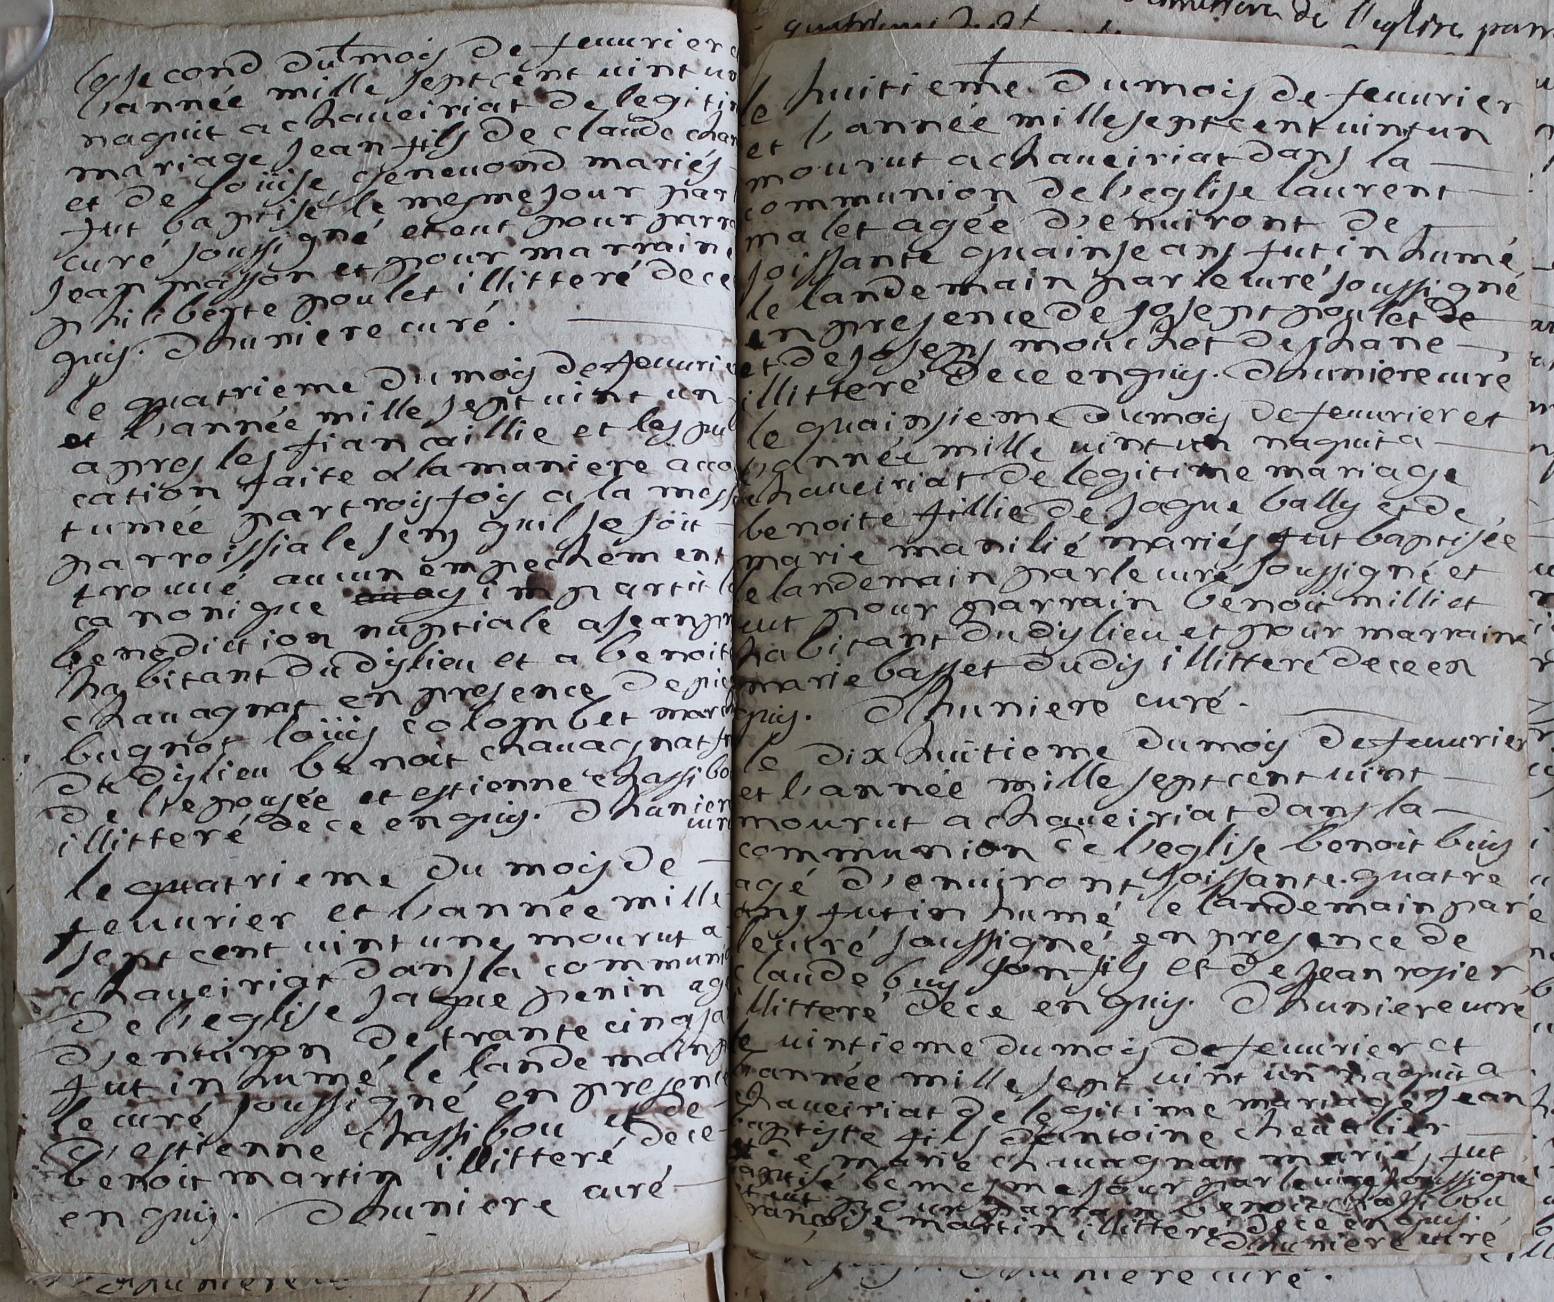 le second du mois de feuurier
l'année mille sept cent uint un
naquit a chaueiriat de legitim
mariage jean fils de claude chan
et de loüise geneuond mariés
fut baptisé le mesme jour par
curé soussigné et eut pour parr
jean masson et pour marraine
philiberte poulet illitteré de ce
quis. Dhuniere curé.
le quatrieme du mois de feuurie
et l'année mille sept uint un
apres les fiancaillie et les pu
cation faite a la maniere acco
tumée par trois fois a la mess
parroissiale sens quil se soit
trouué aucun empechement
canonique imparti l
benediction nuptiale a jean
habitant dudis lieu et a benoit
chauagnat en presence de pie
bugnot loüis colombet mar
du dis lieu benoit chauagnat
de l'epousée et estienne chassibo
illitteré de ce enquis. Dhunier
curé
le quatrieme du mois de
feuurier et l'année mille
sept cent uint une mourut a
chaueiriat dans la communi
de l'eglise jaque penin agé
d'enuiron de trante cinq
fut in humé le lande main
le curé soussigné en presence
d'estienne chassibou et de
benoit martin illitteré de ce
enquis. Dhuniere curé
quatrieme
de l'eglise parr
le huitieme du mois de feuurier
et l'année mille sept cent uint un
mourut a chaueiriat dans la
communion de l'eglise laurent
malet agée d'enuiront de
soissante quainse ans fut in humé
le landemain par le curé soussigné
en presence de joseph poulet de
et de joseph mouchet de
illitteré de ce enquis. Dhuniere curé
le quainsieme du mois de feuurier et
l'année mille uint un naquit a
chaueiriat de legitime mariage
benoite fillie de jaque bally et de
marie manilié mariés fut baptisée
le landemain par le curé soussigné et
eut pour parrain benoit milliet
habitant du dis lieu et pour marraine
marie basset du dis illitteré de ce en
quis. Dhuniere curé.
le dix huitieme du mois de feuurier
et l'année mille sept cent uint
mourut a chaueiriat dans la
communion de l'eglise benoit buis
agé d'enuiront soissante quatre
ans fut in humé le landemain par
le curé soussigné en presence de
claude buy son fils et de jean rosier
illitteré de ce enquis. Dhuniere curé
le uintieme du mois de feuurier et
l'année mille sept uint un naquit a
chaueiriat de legitime mariage jean
baptiste fils d'antoine cheualier
et de marie chauagnat mariés fut
baptisé le mesme jour par le curé soussigné
et eut pour parrain benoit chassibou
francoise martin illitteré de ce enquis.
Dhuniere curé
Dhuniere curé.